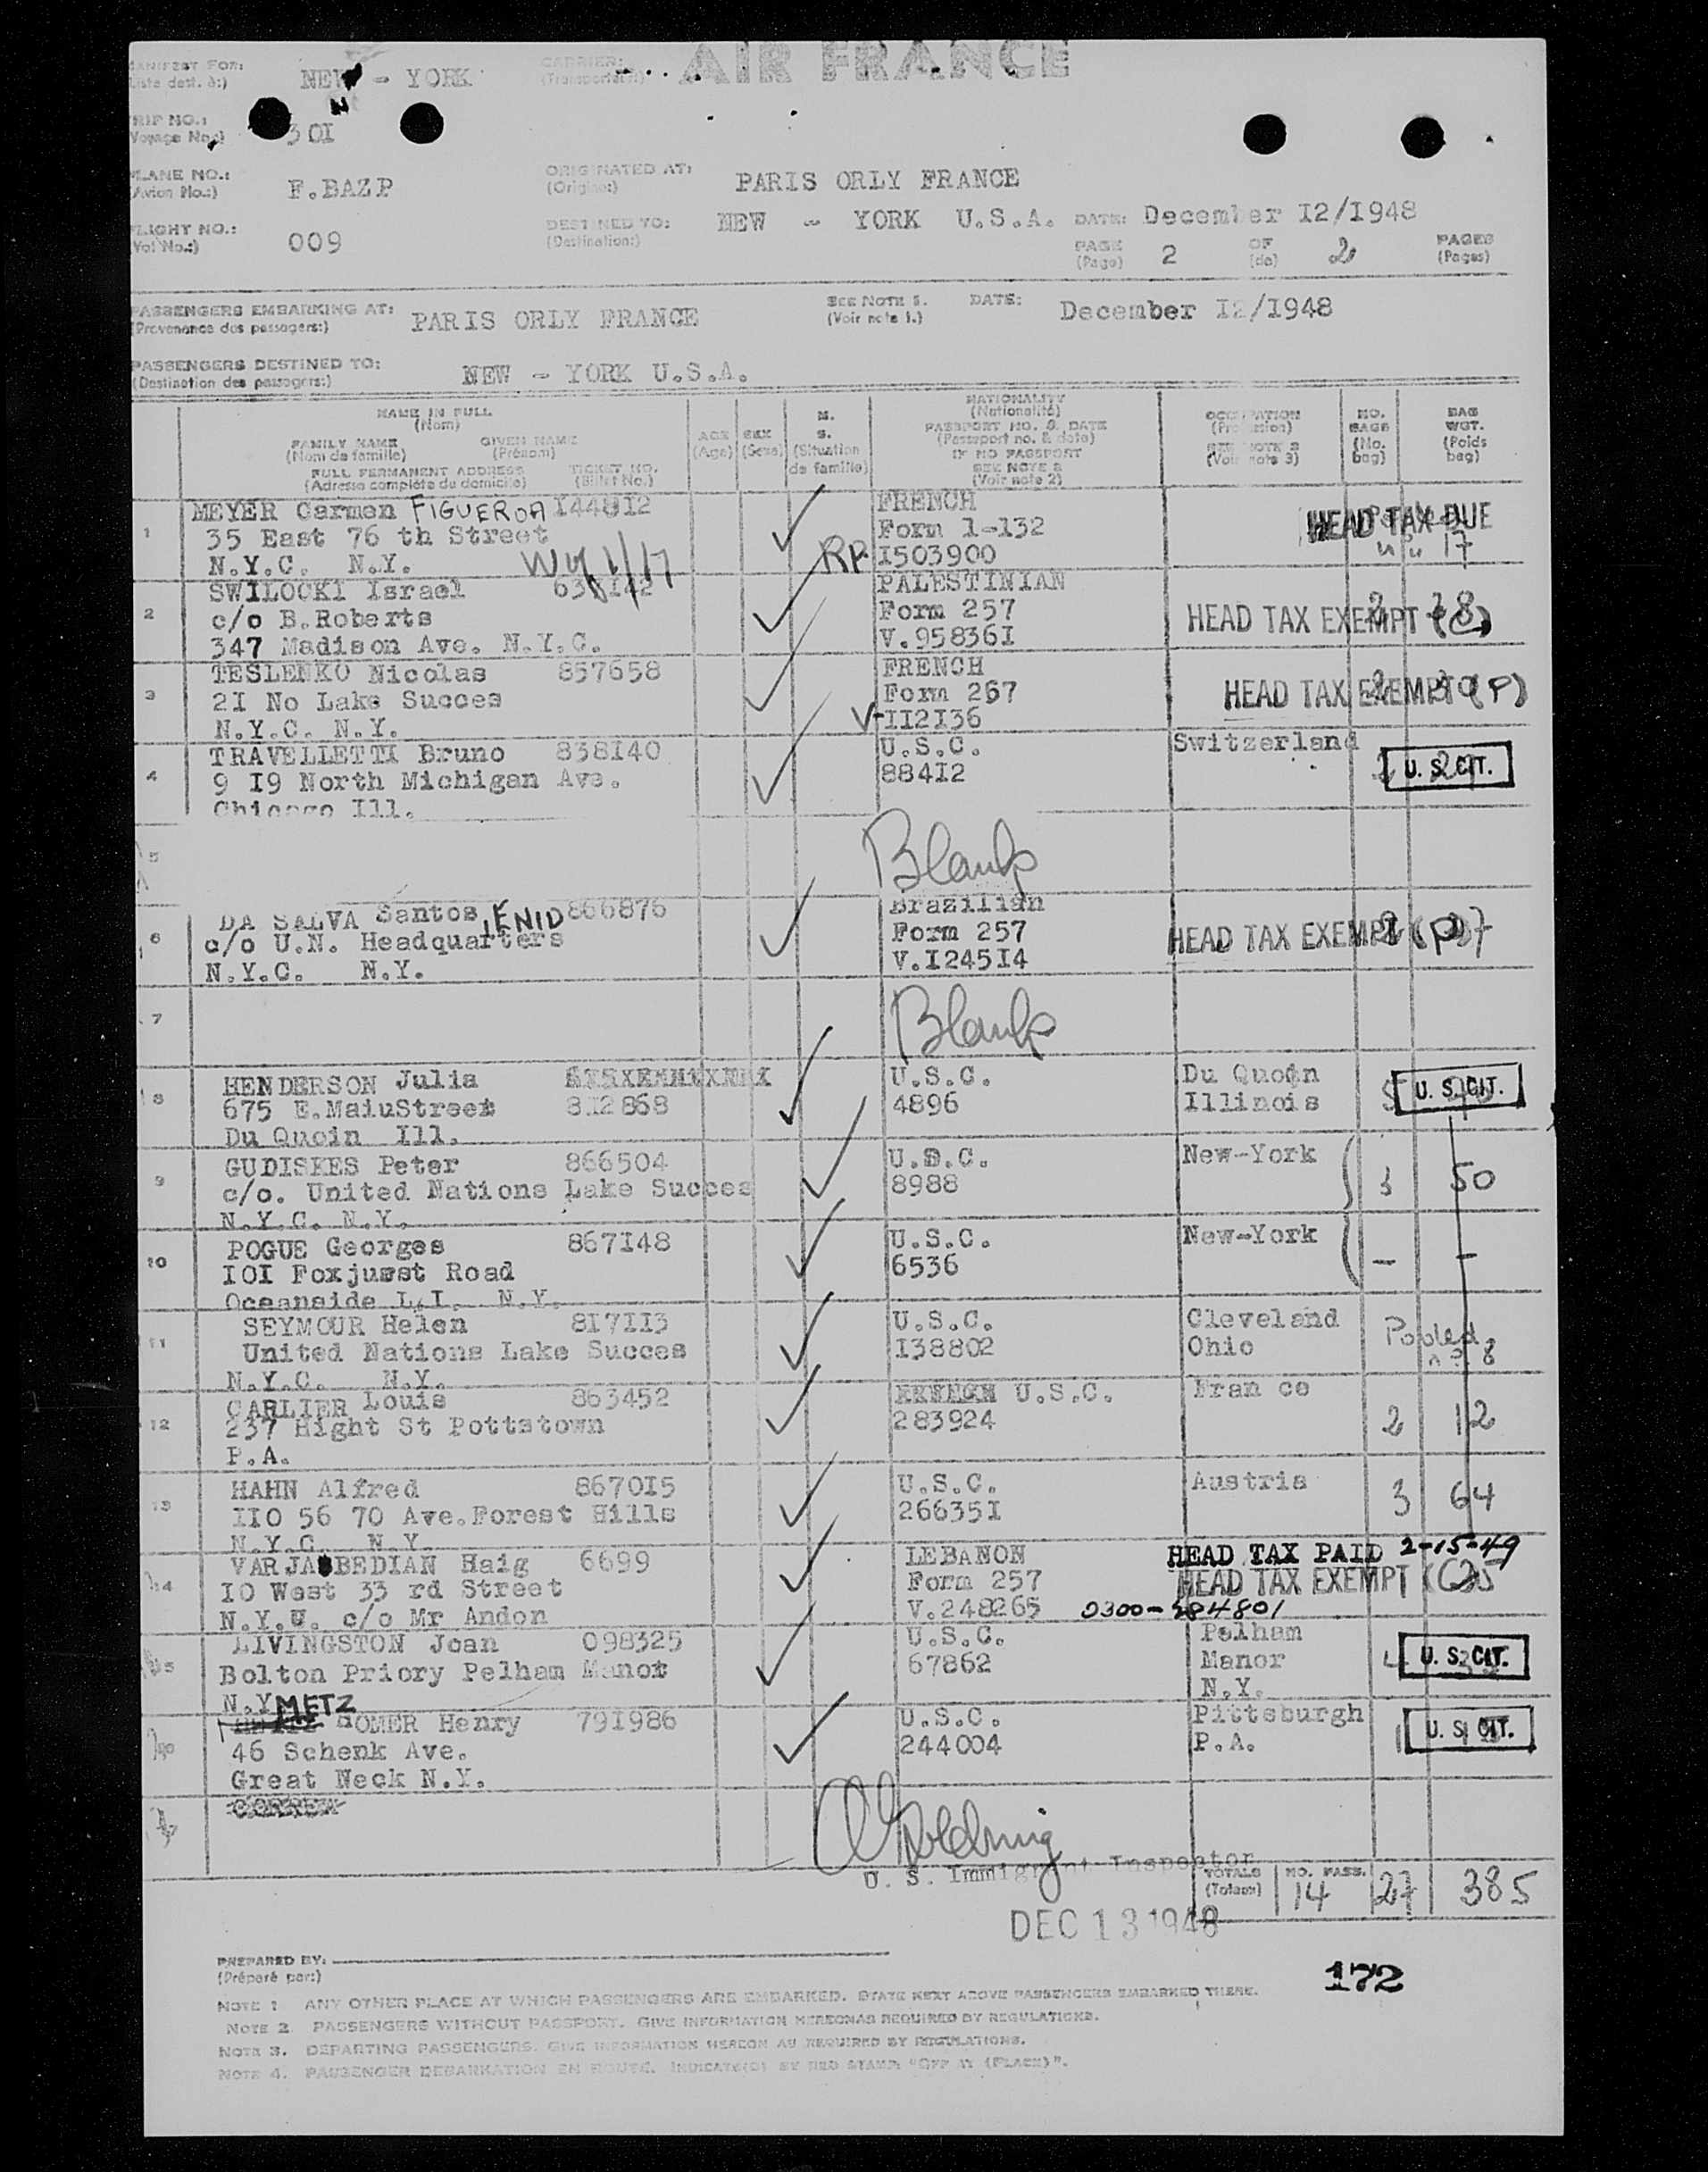 MANIFEST FOR: NEW - YORK CARRIER: AIR FRANCE
(Liste dest. à:) (Transporteur:)
TRIP NO.: 301
(Voyage No.:)
PLANE NO.: F.BAZP ORIGINATED AT: PARIS ORLY FRANCE
(Avion No.:) (Origine:)
FLIGHT NO.: 009 DESTINED TO: NEW - YORK U.S.A. DATE: December I2/I948
(Vol No.:) (Destination:) PAGE 2 OF 2 PAGES
(Page) (de) (Pages)
PASSENGERS EMBARKING AT: PARIS ORLY FRANCE SEE NOTE 1. DATE: December I2/I948
(Provenance des passagers:) (Voir note 1.)
PASSENGERS DESTINED TO: NEW - YORK U.S.A.
(Destination des passagers:)
NAME IN FULL
(Nom)
FAMILY NAME GIVEN NAME
(Nom de famille) (Prénom)
FULL PERMANENT ADDRESS TICKET NO.
(Adresse complète du domicile) (Billet No.)
AGE
(Age)
SEX
(Sexe)
M.
S.
(Situation
de famille)
NATIONALITY
(Nationalité)
PASSPORT NO. & DATE
(Passeport no. & date)
IF NO PASSPORT
SEE NOTE 2
(Voir note 2)
OCCUPATION
(Profession)
SEE NOTE 3
(Voir note 3)
NO.
BAGS
(No.
bag)
BAG
WGT.
(Poids
bag)
1 MEYER Carmen FIGUEROA I448I2 FRENCH HEAD TAX DUE
35 East 76 th Street Form 1-132 17
N.Y.C. N.Y. RP I503900
2 SWILOCKI Israel PALESTINIAN
c/o B.Roberts Form 257 HEAD TAX EXEMPT (C)
347 Madison Ave. N.Y.C. V.95836I
3 TESLENKO Nicolas 857658 FRENCH
2I No Lake Succes Form 257 HEAD TAX EXEMPT (P)
N.Y.C. N.Y. V-II2I36
4 TRAVELLETTI Bruno 838I40 U.S.C. Switzerland
9 I9 North Michigan Ave. 884I2 U. S. CIT.
Chicago Ill.
5 Blank
6 DA SALVA Santos, ENID 866876 Brazilian
c/o U.N. Headquarters Form 257 HEAD TAX EXEMPT (P)
N.Y.C. N.Y. V.I245I4
7 Blank
8 HENDERSON Julia U.S.C. Du Quoin
675 E.MaiuStreet 8I2868 4896 Illinois 5 U. S. CIT.
Du Quoin Ill.
9 GUDISKES Peter 866504 U.S.C. New-York
c/o. United Nations Lake Succes 8988 3 50
N.Y.C. N.Y.
10 POGUE Georges 867I48 U.S.C. New-York
IOI Foxjuwst Road 6536 - -
Oceanside L.I. N.Y.
11 SEYMOUR Helen 8I7II3 U.S.C. Cleveland
United Nations Lake Succes I38802 Ohio Pooled
N.Y.C. N.Y. 8
12 CARLIER Louis 863452 U.S.C. Fran ce
237 Hight St Pottstown 283924 2 12
P.A.
13 HAHN Alfred 8670I5 U.S.C. Austria
IIO 56 70 Ave.Forest Hills 26635I 3 64
N.Y.C. N.Y.
14 VARJABEDIAN Haig 6699 LEBANON HEAD TAX PAID 2-15-49
IO West 33 rd Street Form 257 HEAD TAX EXEMPT (C)
N.Y.C. c/o Mr Andon V.248265 0300-
15 LIVINGSTON Joan 098325 U.S.C. Pelham
Bolton Priory Pelham Manor 67862 Manor 4 U. S. CIT.
N.Y. N.Y.
METZ HOMER Henry 79I986 U.S.C. Pittsburgh
46 Schenk Ave. 244004 P.A. 1 U. S. CIT.
Great Neck N.Y.
U. S. Immigrant Inspector
TOTALS NO. PASS.
(Totaux) 14 27 385
DEC 13 1948
PREPARED BY:
(Préparé par:)
172
NOTE 1 ANY OTHER PLACE AT WHICH PASSENGERS ARE EMBARKED. STATE NEXT ABOVE PASSENGERS EMBARKED THERE.
NOTE 2 PASSENGERS WITHOUT PASSPORT. GIVE INFORMATION HEREON AS REQUIRED BY REGULATIONS.
NOTE 3. DEPARTING PASSENGERS. GIVE INFORMATION HEREON AS REQUIRED BY REGULATIONS.
NOTE 4. PASSENGER DEBARKATION EN ROUTE. INDICATE(D) BY RED STAMP "OFF AT (PLACE)".